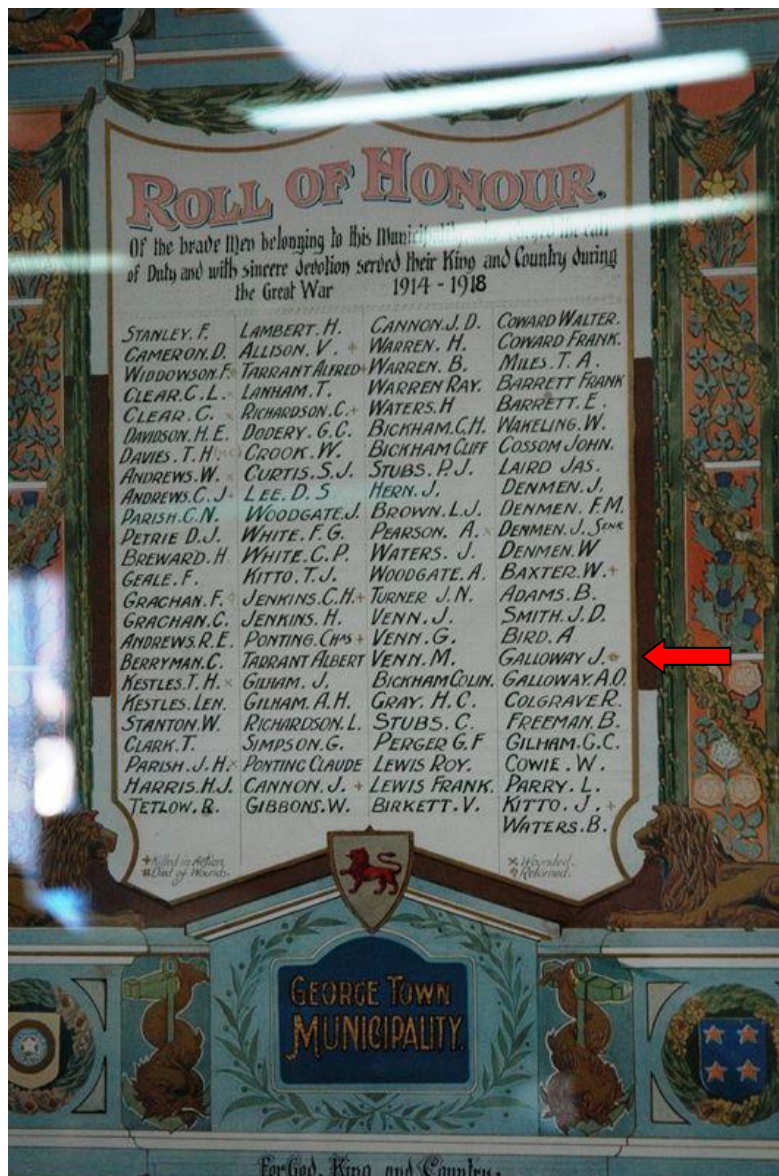 ROLL OF HONOUR.
Of the brave Men belonging to this Municipality who obeyed the call
of Duty and with sincere devotion served their King and Country during
the Great War 1914 - 1918
STANLEY. F.
CAMERON. D.
WIDDOWSON. F.
CLEAR. C. L. ×
CLEAR. C. ×
DAVIDSON. H. E.
DAVIES. T. H
ANDREWS. W. ×
ANDREWS. C. J +
PARISH. C. N.
PETRIE D. J.
BREWARD. H
GEALE. F.
GRACHAN. F.
GRACHAN. C.
ANDREWS. R. E.
BERRYMAN. C.
KESTLES. T. H. ×
KESTLES. LEN.
STANTON. W.
CLARK. T.
PARISH. J. H. ×
HARRIS. H. J.
TETLOW. R.
LAMBERT. H.
ALLISON. V. +
TARRANT ALFRED +
LANHAM. T.
RICHARDSON. C. +
DODERY. G. C.
CROOK. W.
CURTIS. S. J.
LEE. D. S
WOODGATE. J.
WHITE. F. G.
WHITE. C. P.
KITTO. T. J.
JENKINS. C. H. +
JENKINS. H.
PONTING. CHAS +
TARRANT ALBERT
GILHAM. J.
GILHAM. A. H.
RICHARDSON. L.
SIMPSON. G.
PONTING CLAUDE
CANNON. J. +
GIBBONS. W.
CANNON. J. D.
WARREN. H.
WARREN. B.
WARREN RAY.
WATERS. H
BICKHAM. C. H.
BICKHAM CLIFF
STUBS. P. J.
HERN. J.
BROWN. L. J.
PEARSON. A. ×
WATERS. J.
WOODGATE. A.
TURNER J. N.
VENN. J.
VENN. G.
VENN. M.
BICKHAM COLIN.
GRAY. H. C.
STUBS. C.
PERGER G. F
LEWIS ROY.
LEWIS FRANK.
BIRKETT. V.
COWARD WALTER.
COWARD FRANK.
MILES. T. A.
BARRETT FRANK
BARRETT. E.
WAKELING. W.
COSSOM JOHN.
LAIRD JAS.
DENMEN. J.
DENMEN. F. M.
DENMEN. J. SENR
DENMEN. W
BAXTER. W. +
ADAMS. B.
SMITH. J. D.
BIRD. A
GALLOWAY J.
GALLOWAY. A. O.
COLGRAVE R.
FREEMAN. B.
GILHAM. G. C.
COWIE. W.
PARRY. L.
KITTO. J. +
WATERS. B.
+ Killed in Action.
Died of Wounds.
× Wounded.
Returned.
GEORGE TOWN
MUNICIPALITY.
For God, King and Country.